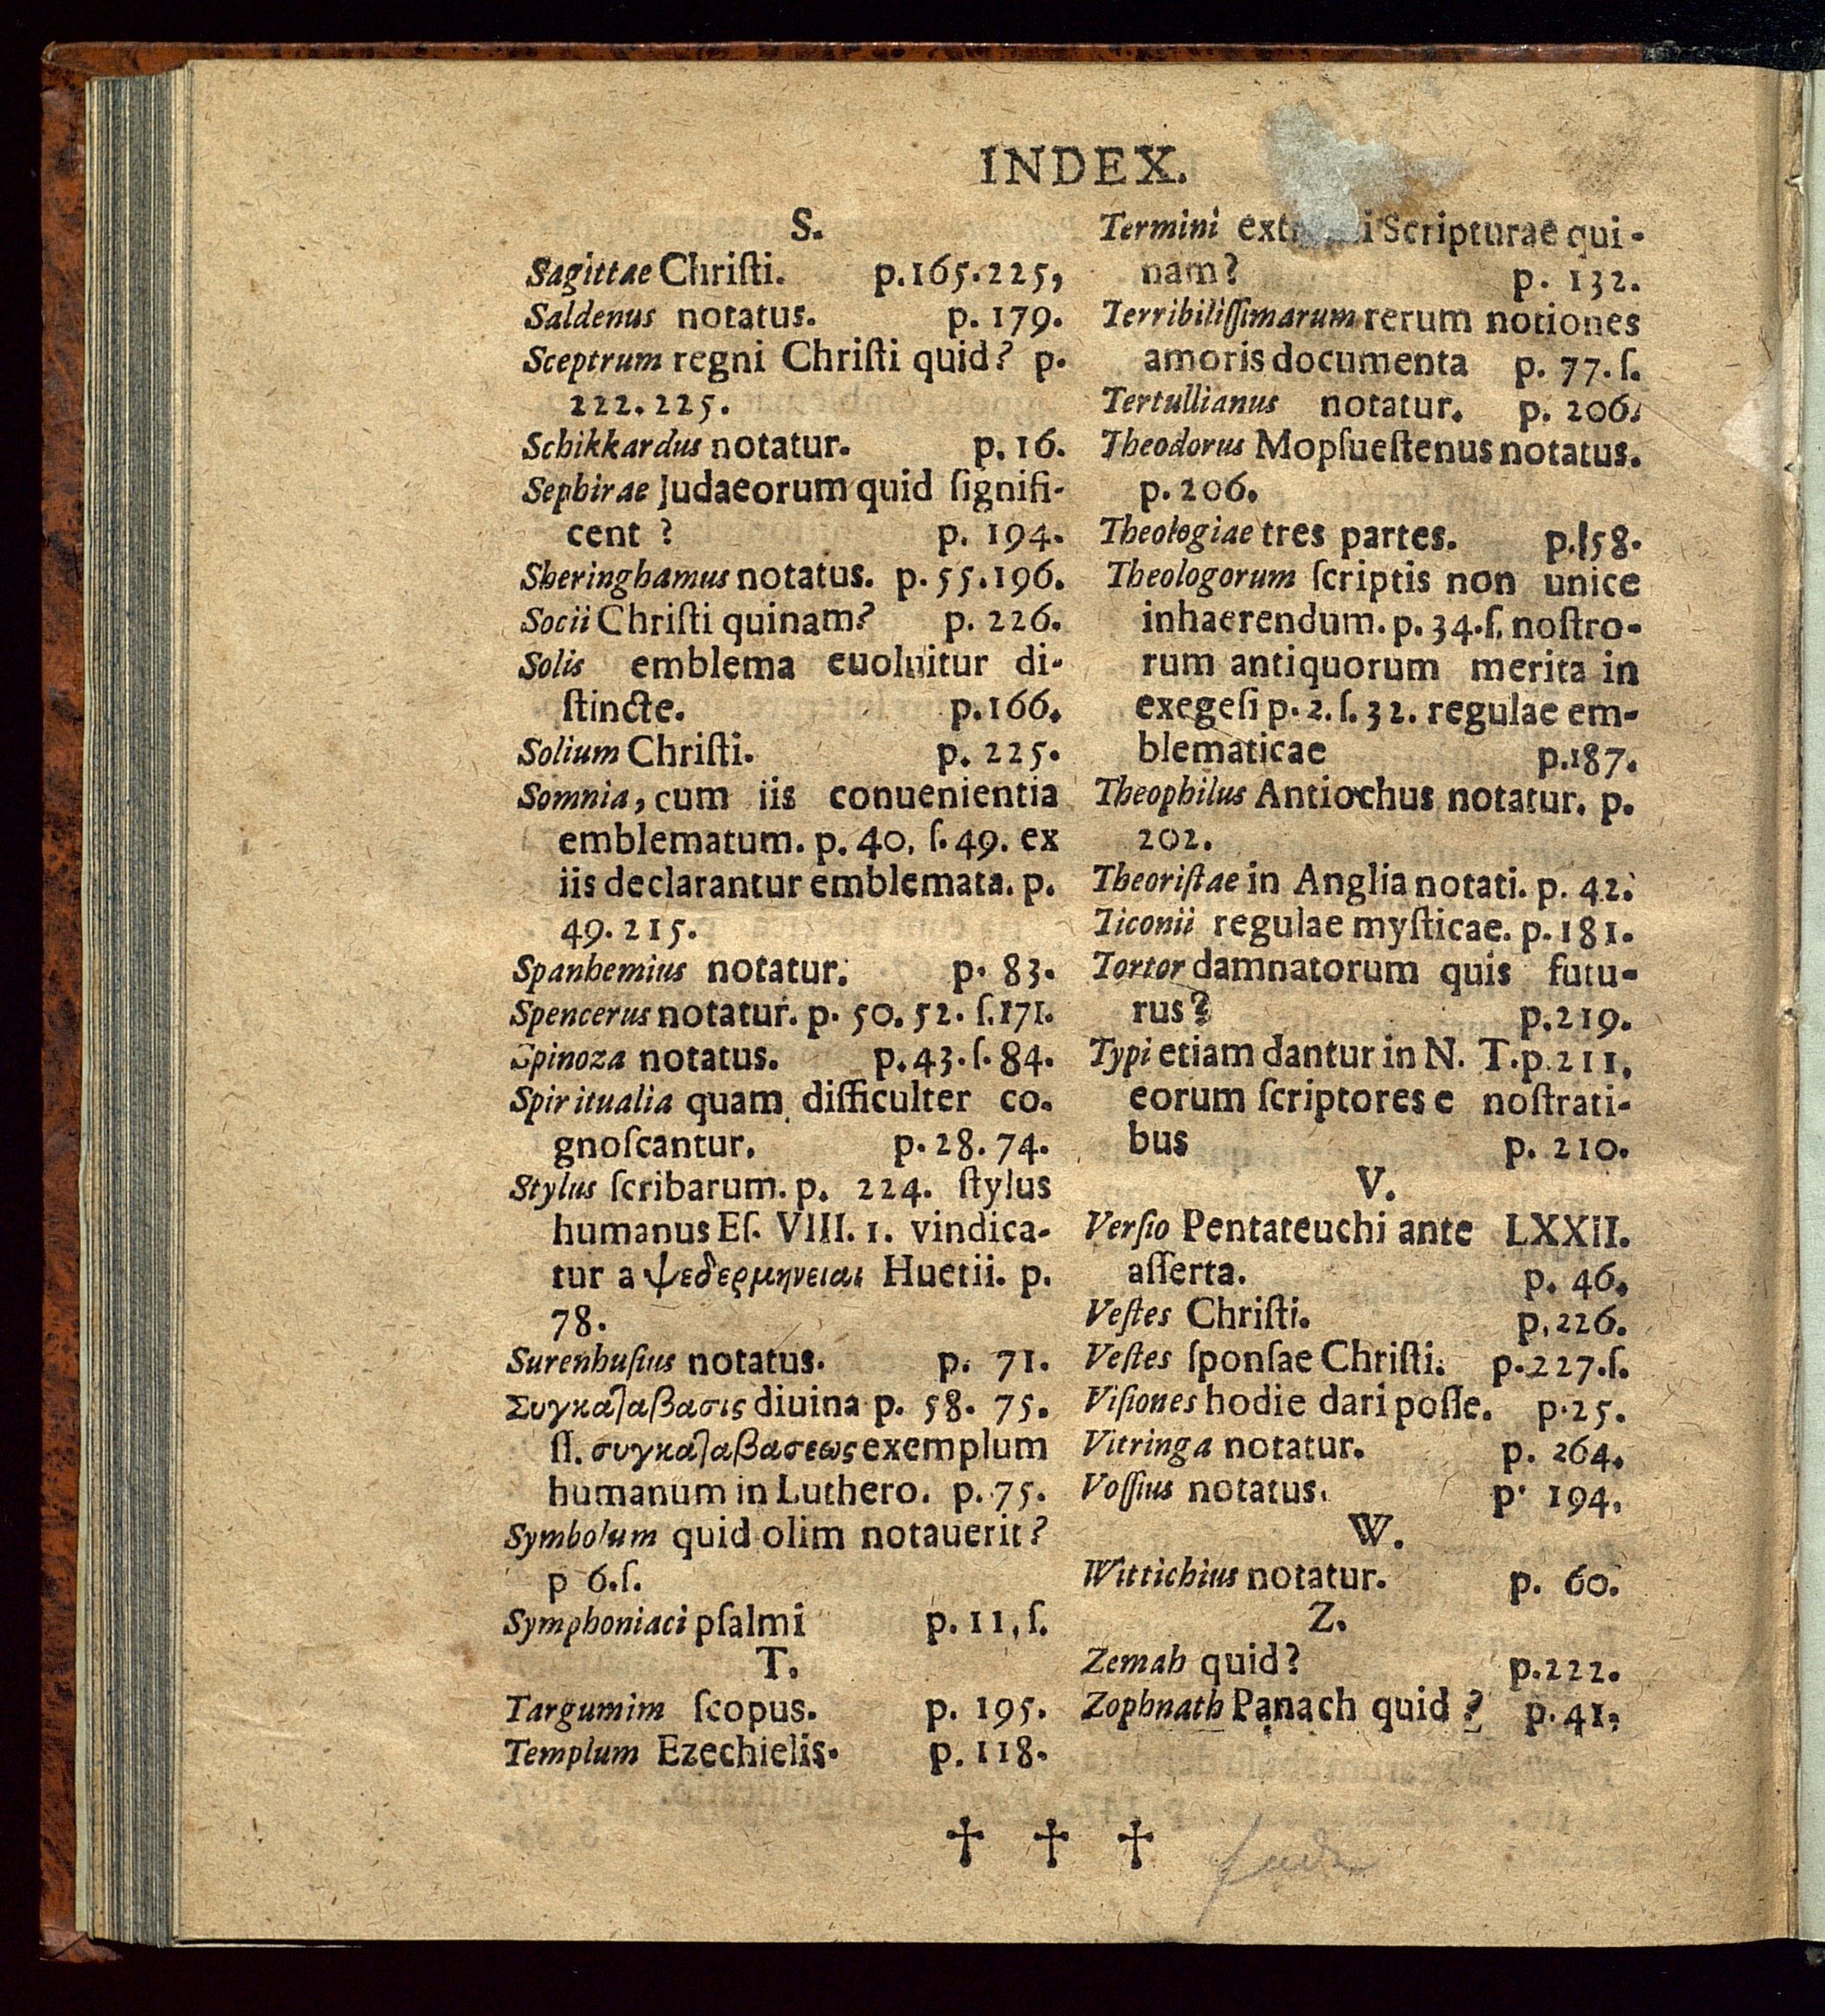 INDEX.
S.
Sagittae Chriſti. p.165.225,
Saldenus notatus. p. 179.
Sceptrum regni Chriſti quid? p.
222.225.
Schikkardus notatur. p. 16.
Sephirae Judaeorum quid ſignifi-
cent ? p. 194.
Sheringhamus notatus. p. 55.196.
Socii Chriſti quinam? p. 226.
Solis emblema euoluitur di-
ſtincte. p.166.
Solium Chriſti. p. 225.
Somnia, cum iis conuenientia
emblematum. p. 40. ſ. 49. ex
iis declarantur emblemata. p.
49. 215.
Spanhemius notatur. p. 83.
Spencerus notatur. p. 50. 52. ſ.171.
Spinoza notatus. p.43. ſ. 84.
Spiritualia quam difficulter co.
gnoſcantur. p. 28. 74.
Stylus ſcribarum. p. 224. ſtylus
humanus Eſ. VIII. 1. vindica-
tur a ψεδερμηνειαι Huetii. p.
78.
Surenhuſius notatus. p. 71.
Συγκαταβασις diuina p. 58. 75.
ſſ. συγκαταβασεως exemplum
humanum in Luthero. p. 75.
Symbolum quid olim notauerit?
p 6.ſ.
Symphoniaci pſalmi p. 11, ſ.
T.
Targumim ſcopus. p. 195.
Templum Ezechielis. p. 118.
Termini Scripturae qui-
nam? p. 132.
Terribiliſſimarum rerum notiones
amoris documenta p. 77. ſ.
Tertullianus notatur. p. 206.
Theodorus Mopſueſtenus notatus.
p. 206.
Theologiae tres partes. p.58.
Theologorum ſcriptis non unice
inhaerendum. p. 34.ſ. noſtro-
rum antiquorum merita in
exegeſi p. 2. ſ. 32. regulae em-
blematicae p.187.
Theophilus Antiochus notatur. p.
202.
Theoriſtae in Anglia notati. p. 42.
Ticonii regulae myſticae. p. 181.
Tortor damnatorum quis futu-
rus? p.219.
Typi etiam dantur in N. T.p.211,
eorum ſcriptores e noſtrati-
bus p. 210.
V.
Verſio Pentateuchi ante LXXII.
aſſerta. p. 46.
Veſtes Chriſti. p.226.
Veſtes ſponſae Chriſti. p.227.ſ.
Viſiones hodie dari poſſe. p.25.
Vitringa notatur. p. 264.
Voſſius notatus. p. 194.
W.
Wittichius notatur. p. 60.
Z.
Zemah quid? p.222.
Zophnath Panach quid ? p.41.
† † †